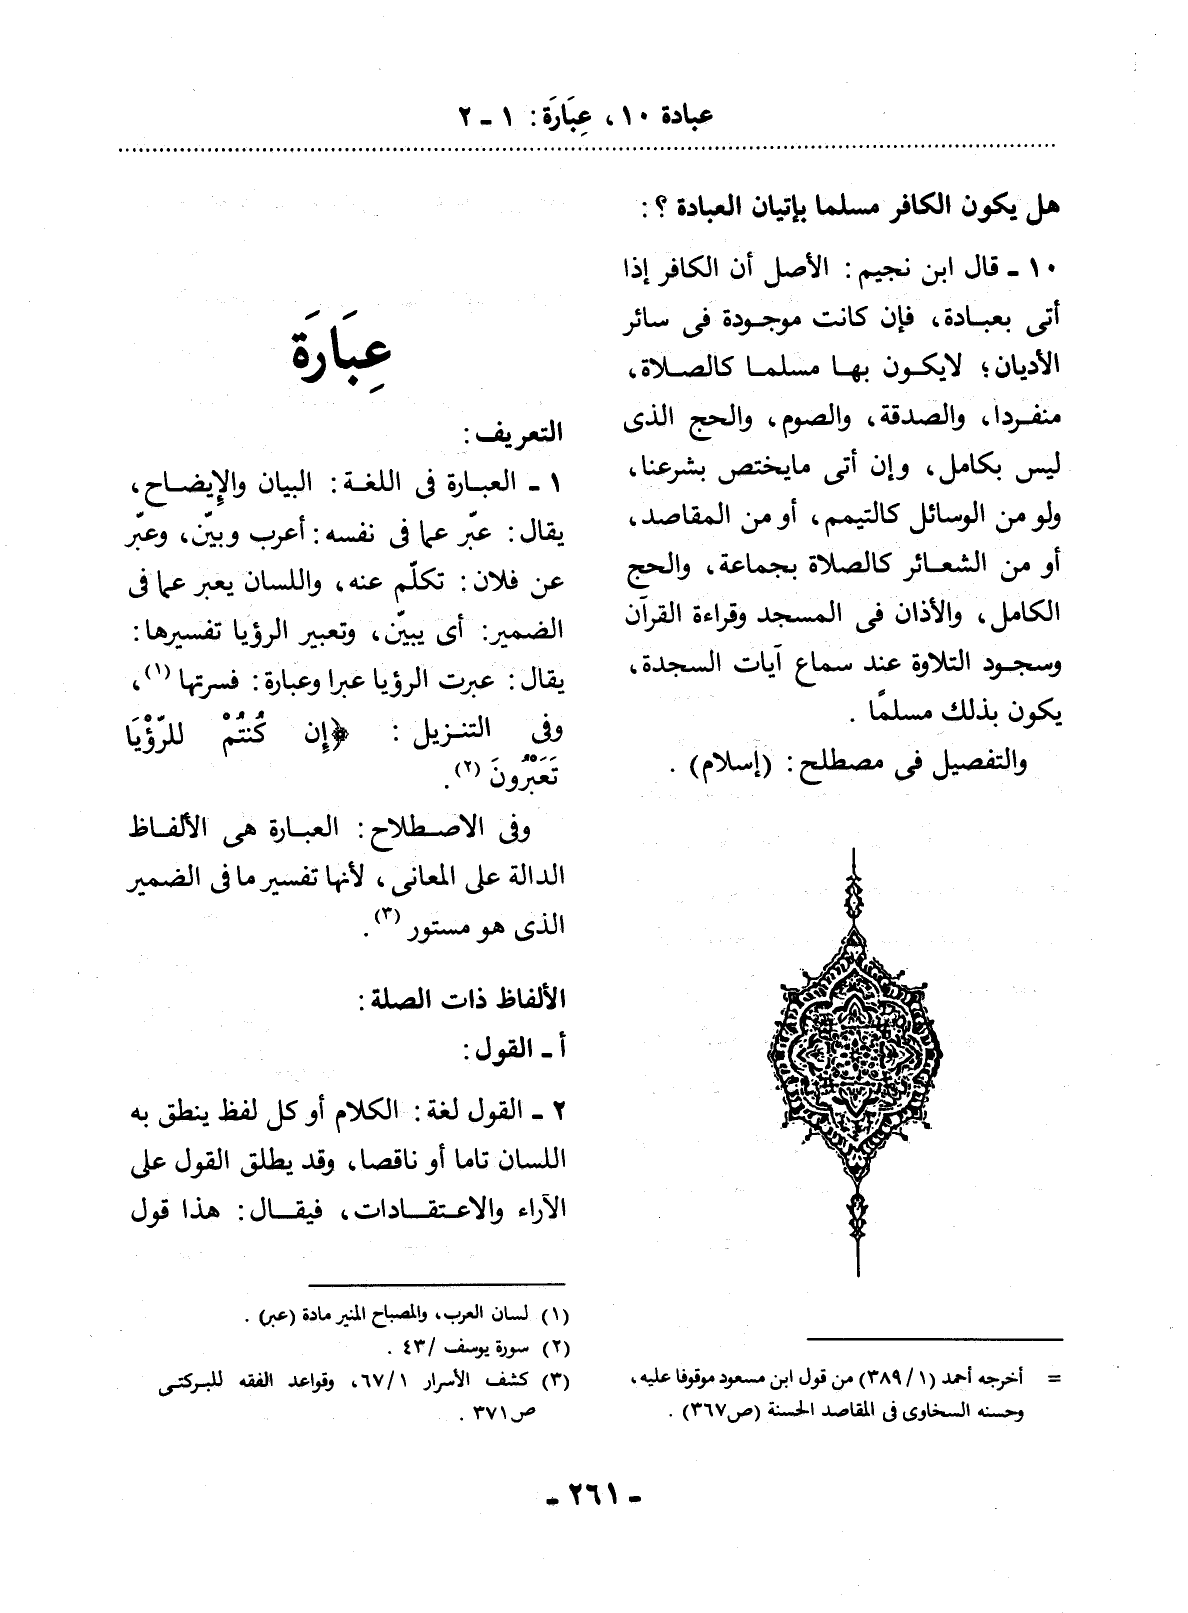 عبادة ١٠، عِبَارَة: ١ - ٢
هل يكون الكافر مسلما بإتيان العبادة ؟ :
١٠ - قال ابن نجيم : الأصل أن الكافر إذا
أتى بعبادة، فإن كانت موجودة فى سائر
الأديان؛ لايكون بها مسلما كالصلاة،
منفردا، والصدقة، والصوم، والحج الذى
ليس بكامل، وإن أتى مايختص بشرعنا،
ولو من الوسائل كالتيمم، أو من المقاصد،
أو من الشعائر كالصلاة بجماعة، والحج
الكامل، والأذان فى المسجد وقراءة القرآن
وسجود التلاوة عند سماع آيات السجدة،
يكون بذلك مسلمًا .
والتفصيل فى مصطلح : (إسلام) .
= أخرجه أحمد (١/ ٣٨٩) من قول ابن مسعود موقوفا عليه،
وحسنه السخاوى فى المقاصد الحسنة (ص٣٦٧) .
عِبَارَة
التعريف :
١ - العبارة فى اللغة : البيان والإيضاح،
يقال : عبّر عما فى نفسه : أعرب وبيّن، وعبّر
عن فلان : تكلّم عنه، واللسان يعبر عما فى
الضمير : أى يبيّن، وتعبير الرؤيا تفسيرها :
يقال : عبرت الرؤيا عبرا وعبارة : فسرتها (١)،
وفى التنزيل : ﴿إِن كُنتُمْ للرُّؤْيَا
تَعْبُرُونَ (٢).
وفى الاصطلاح : العبارة هى الألفاظ
الدالة على المعانى، لأنها تفسير ما فى الضمير
الذى هو مستور (٣).
الألفاظ ذات الصلة :
أ - القول :
٢ - القول لغة : الكلام أو كل لفظ ينطق به
اللسان تاما أو ناقصا، وقد يطلق القول على
الآراء والاعتقادات، فيقال : هذا قول
(١) لسان العرب، والمصباح المنير مادة (عبر) .
(٢) سورة يوسف /٤٣ .
(٣) كشف الأسرار ١/ ٦٧، وقواعد الفقه للبركتى
ص٣٧١ .
- ٢٦١ -